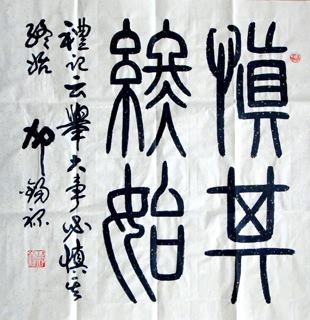 慎其
終始
禮記云舉大事必慎其
終始